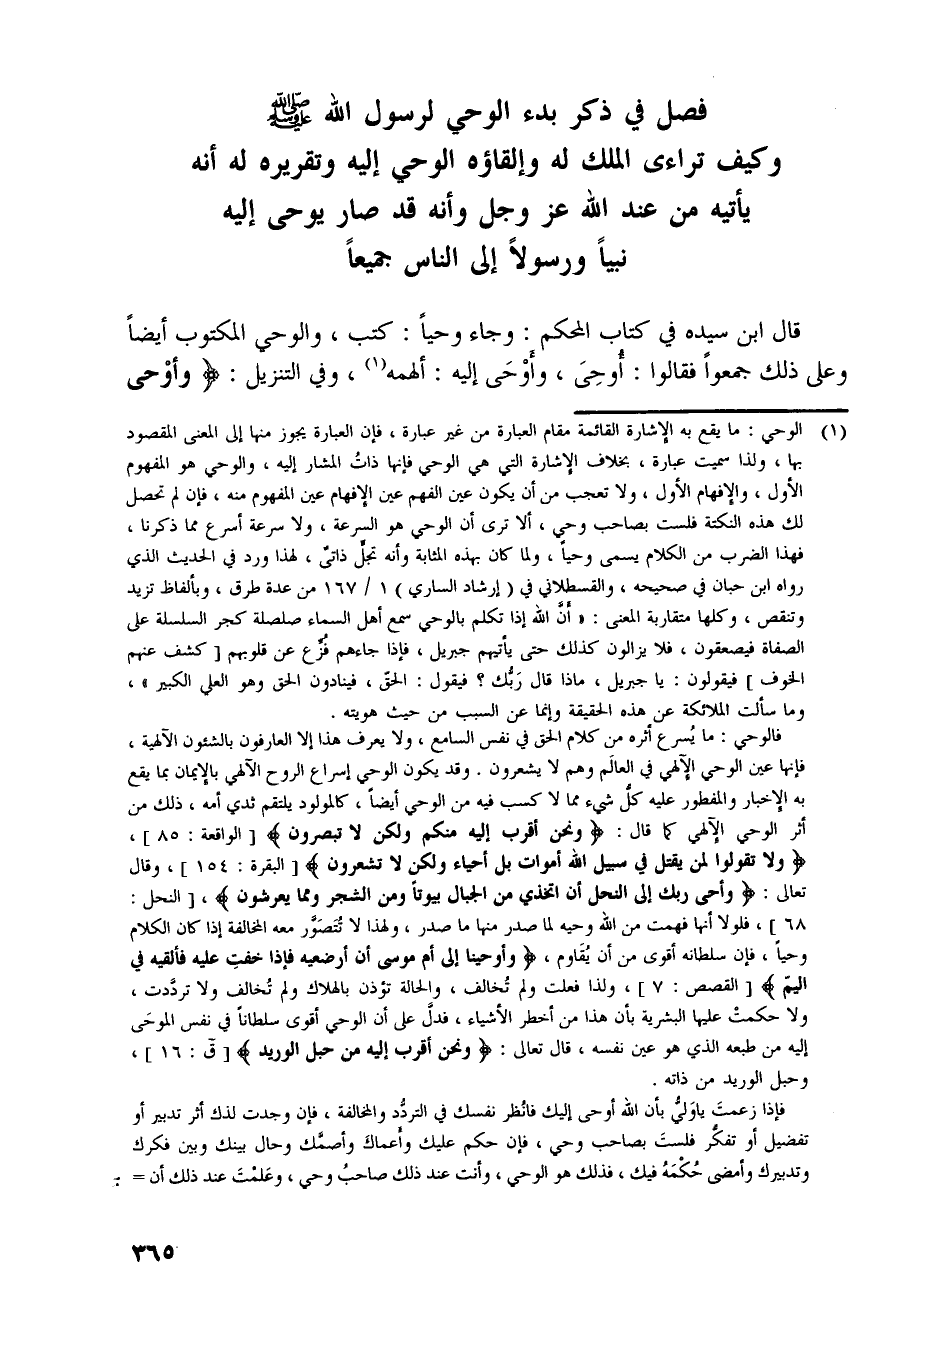 فصل في ذكر بدء الوحي لرسول الله ﷺ
وكيف تراءى الملك له وإلقاؤه الوحي إليه وتقريره له أنه
يأتيه من عند الله عز وجل وأنه قد صار يوحى إليه
نبياً ورسولاً إلى الناس جميعاً
قال ابن سيده في كتاب المحكم : وجاء وحياً : كتب ، والوحي المكتوب أيضاً
وعلى ذلك جمعواً فقالوا : أُوحِيَ ، وأَوْحَى إليه : ألهمه(١) ، وفي التنزيل : ﴿ وأوْحى
(١) الوحي : ما يقع به الإشارة القائمة مقام العبارة من غير عبارة ، فإن العبارة يجوز منها إلى المعنى المقصود
بها ، ولذا سميت عبارة ، بخلاف الإشارة التي هي الوحي فإنها ذاتُ المشار إليه ، والوحي هو المفهوم
الأول ، والإفهام الأول ، ولا تعجب من أن يكون عين الفهم عين الإفهام عين المفهوم منه ، فإن لم تحصل
لك هذه النكتة فلست بصاحب وحي ، ألا ترى أن الوحي هو السرعة ، ولا سرعة أسرع مما ذكرنا ،
فهذا الضرب من الكلام يسمى وحياً ، ولما كان بهذه المثابة وأنه تجلٍّ ذاتيٌ ، لهذا ورد في الحديث الذي
رواه ابن حبان في صحيحه ، والقسطلاني في ( إرشاد الساري ) ١ / ١٦٧ من عدة طرق ، وبألفاظ تزيد
وتنقص ، وكلها متقاربة المعنى : « أنَّ الله إذا تكلم بالوحي سمع أهل السماء صلصلة كجر السلسلة على
الصفاة فيصعقون ، فلا يزالون كذلك حتى يأتيهم جبريل ، فإذا جاءهم فُزِّع عن قلوبهم [ كشف عنهم
الخوف ] فيقولون : يا جبريل ، ماذا قال رَبُّك ؟ فيقول : الحقّ ، فينادون الحق وهو العلي الكبير » ،
وما سألت الملائكة عن هذه الحقيقة وإنما عن السبب من حيث هويته .
فالوحي : ما يُسرع أثره من كلام الحق في نفس السامع ، ولا يعرف هذا إلا العارفون بالشئون الآلهية ،
فإنها عين الوحي الآلهي في العالَم وهم لا يشعرون . وقد يكون الوحي إسراع الروح الآلهي بالإيمان بما يقع
به الإخبار والمفطور عليه كلُّ شيء مما لا كسب فيه من الوحي أيضاً ، كالمولود يلتقم ثدي أمه ، ذلك من
أثر الوحي الآلهي كما قال : ﴿ ونحن أقرب إليه منكم ولكن لا تبصرون ﴾ [ الواقعة : ٨٥ ] ،
﴿ ولا تقولوا لمن يقتل في سبيل الله أموات بل أحياء ولكن لا تشعرون ﴾ [ البقرة : ١٥٤ ] ، وقال
تعالى : ﴿ وأحى ربك إلى النحل أن اتخذي من الجبال بيوتاً ومن الشجر ومما يعرشون ﴾ ، [ النحل :
٦٨ ] ، فلولا أنها فهمت من الله وحيه لما صدر منها ما صدر ، ولهذا لا تُتَصوَّر معه المخالفة إذا كان الكلام
وحياً ، فإن سلطانه أقوى من أن يُقَاوم ، ﴿ وأوحينا إلى أم موسى أن أرضعيه فإذا خفتِ عليه فألقيه في
اليمّ ﴾ [ القصص : ٧ ] ، ولذا فعلت ولم تُخالف ، والحالة تؤذن بالهلاك ولم تُخالف ولا تردَّدت ،
ولا حكمتْ عليها البشرية بأن هذا من أخطر الأشياء ، فدلَّ على أن الوحي أقوى سلطاناً في نفس الموحَى
إليه من طبعه الذي هو عين نفسه ، قال تعالى : ﴿ ونحن أقرب إليه من حبل الوريد ﴾ [ قٓ : ١٦ ] ،
وحبل الوريد من ذاته .
فإذا زعمتَ ياوَليُّ بأن الله أوحى إليك فانْظر نفسك في التردُّد والمخالفة ، فإن وجدت لذك أثر تدبير أو
تفضيل أو تفكُّر فلستَ بصاحب وحي ، فإن حكم عليك وأَعماكَ وأصمَّك وحال بينك وبين فكرك
وتدبيرك وأمضى حُكْمَهُ فيك ، فذلك هو الوحي ، وأنت عند ذلك صاحبُ وحي ، وعَلمْتَ عند ذلك أن =
٣٦٥